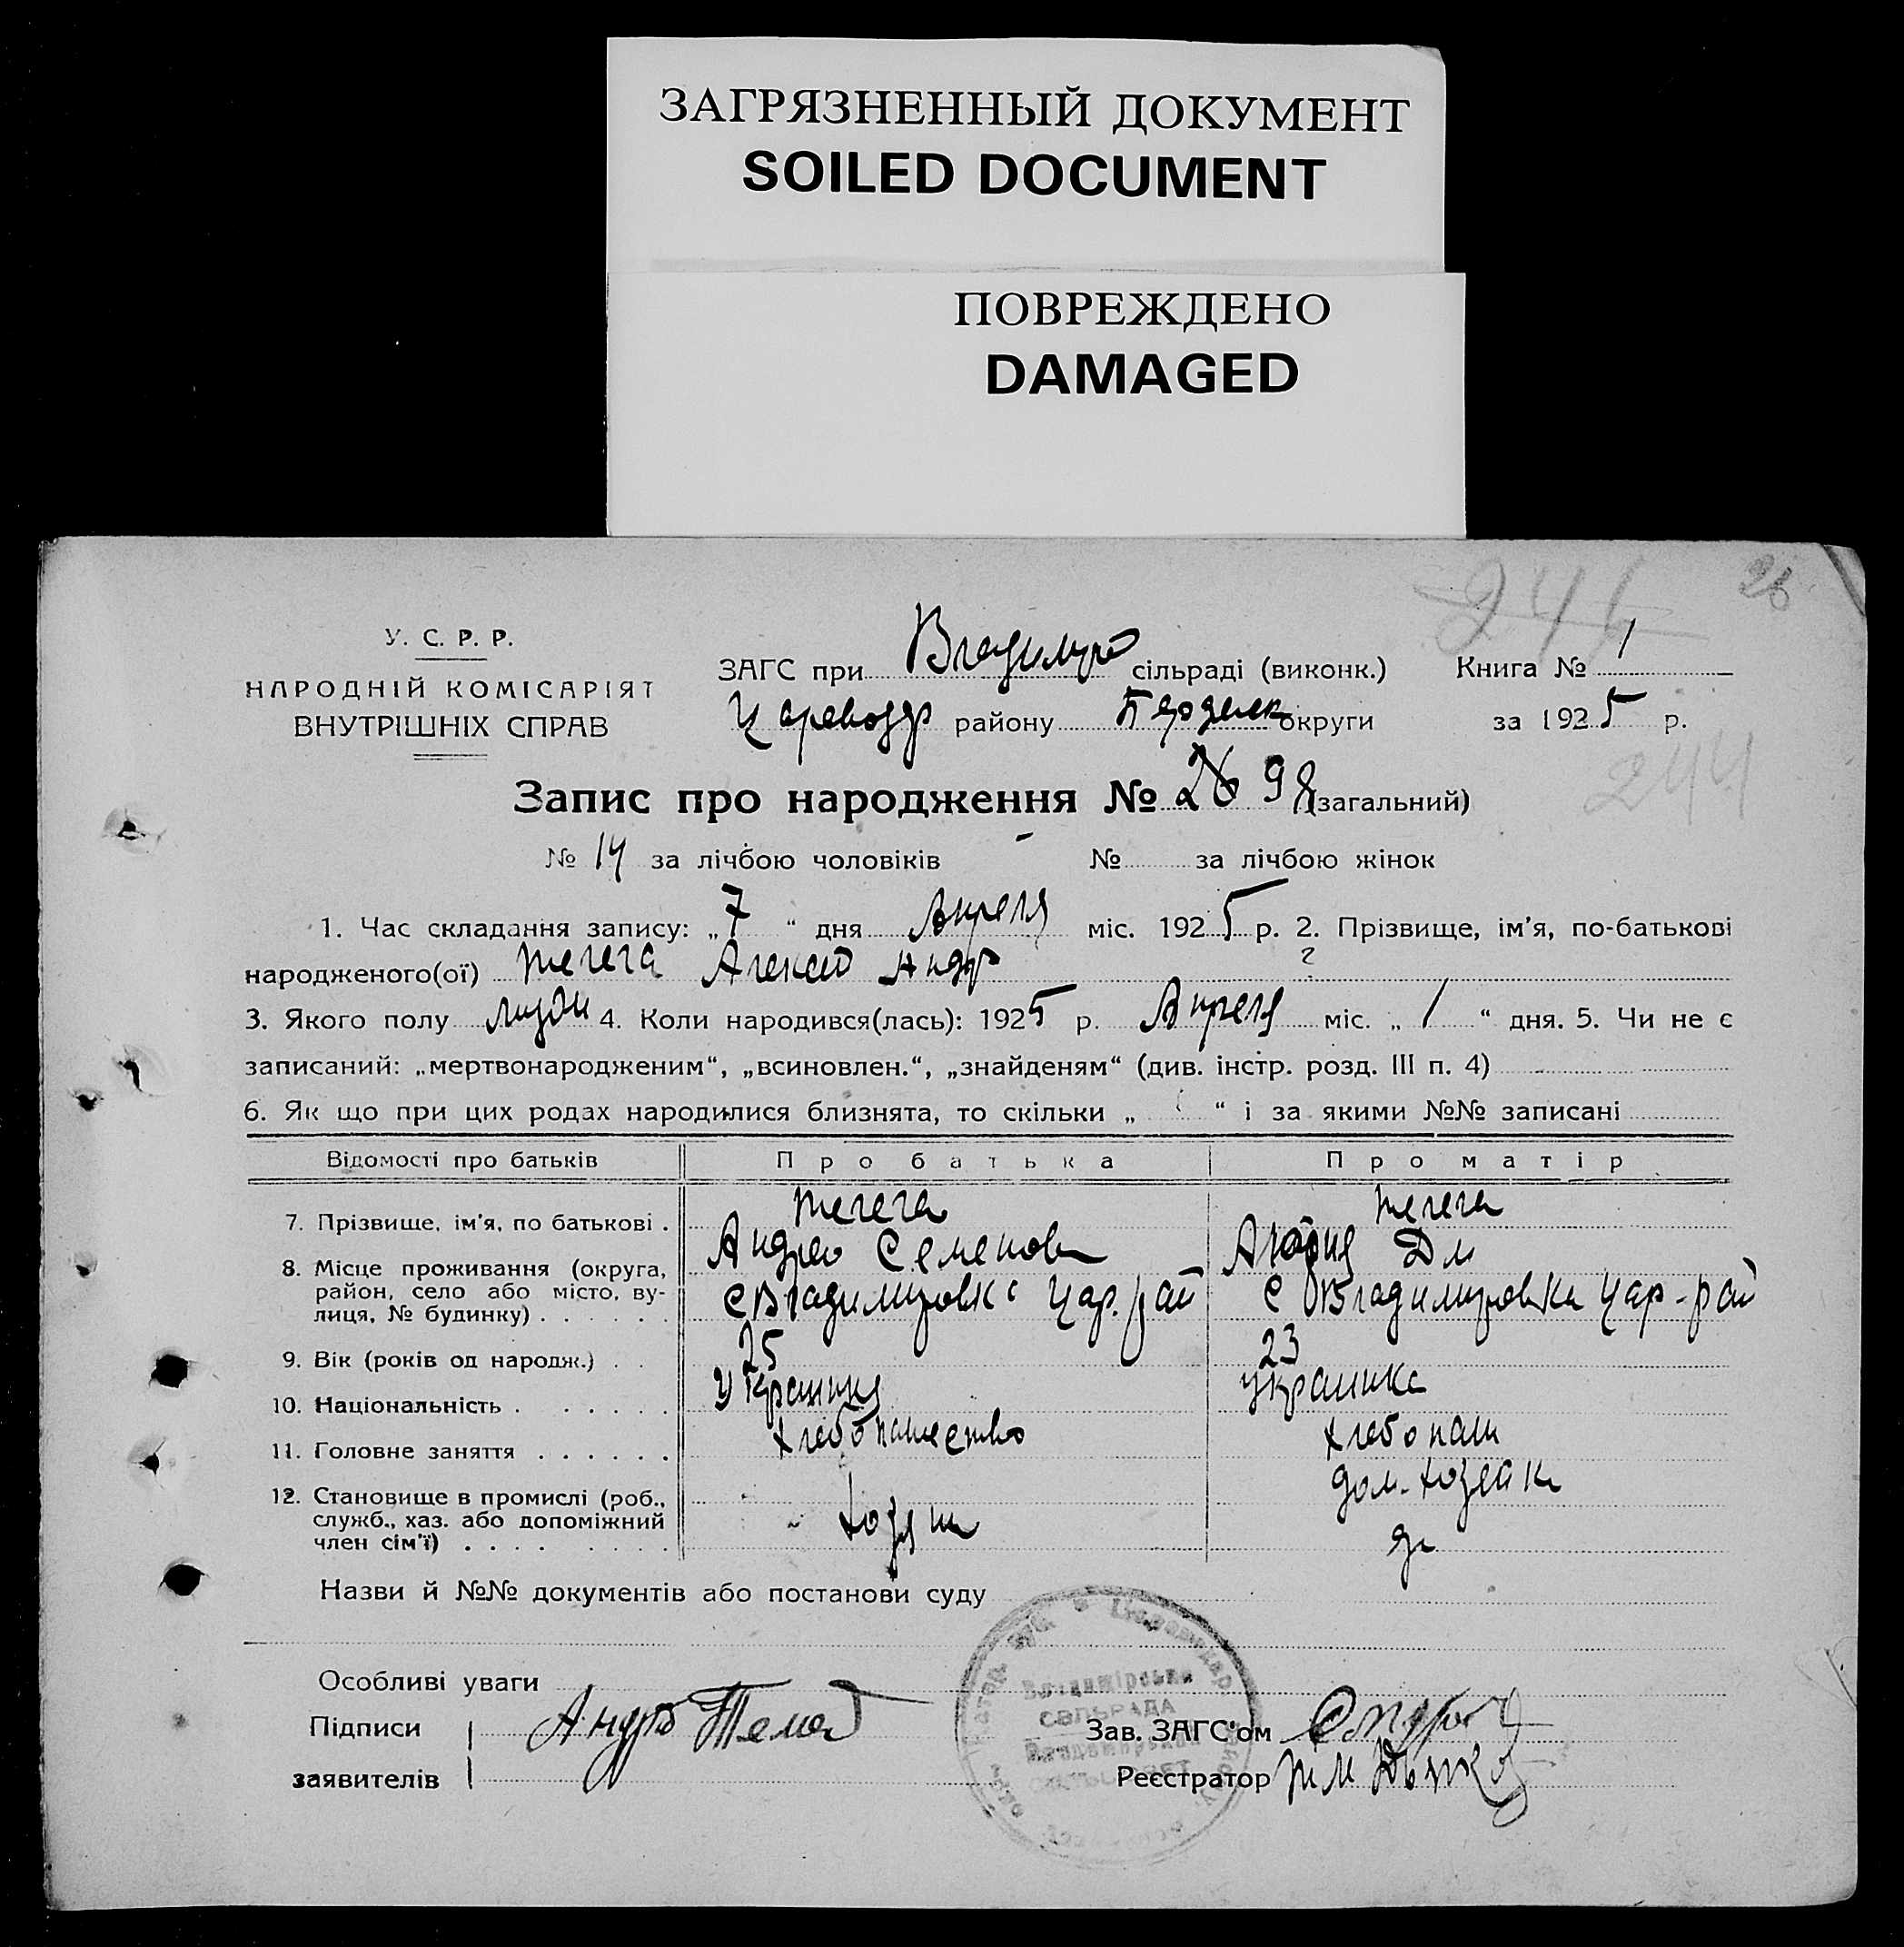 ЗАГРЯЗНЕННЫЙ ДОКУМЕНТ
SOILED DOCUMENT
ПОВРЕЖДЕНО
DAMAGED
26
У. С. Р. Р.
НАРОДНІЙ КОМІСАРІЯТ
ВНУТРІШНІХ СПРАВ
ЗАГС при Владимир сільраді (виконк.) Книга № 1
району округи за 1925 р.
244
Запис про народження № 98 (загальний)
№ 14 за лічбою чоловіків № - за лічбою жінок
1. Час складання запису: „7“ дня Апреля міс. 1925 р. 2. Прізвище, ім'я, по-батькові
народженого(ої) Телега Алексей Андр
3. Якого полу 4. Коли народився(лась): 1925 р. Апреля міс. „1“ дня. 5. Чи не є
записаний: „мертвонародженим“, „всиновлен.“, „знайденям“ (див. інстр. розд. III п. 4)
6. Як що при цих родах народилися близнята, то скільки „ “ і за якими №№ записані
Відомості про батьків Про батька Про матір
7. Прізвище, ім'я, по батькові . Телега Телега
Андрей Семенов Дм
8. Місце проживання (округа, район, село або місто, вулиця, № будинку) . . . . . . с Владимировка Цар. рай с Владимировка Цар-рай
9. Вік (років од народж.) . . 25 23
10. Національність . . . . . . Украинец украинка
11. Головне заняття . . . . . . хлебопашество хлебопаш
дом. хозяйк
12. Становище в промислі (роб., служб., хаз. або допоміжний член сім'ї) . . . . . . . . хозяин
Назви й №№ документів або постанови суду
Особливі уваги
Підписи Андрей
заявителів
Зав. ЗАГС'ом
Реєстратор
СЕЛЬРАДА